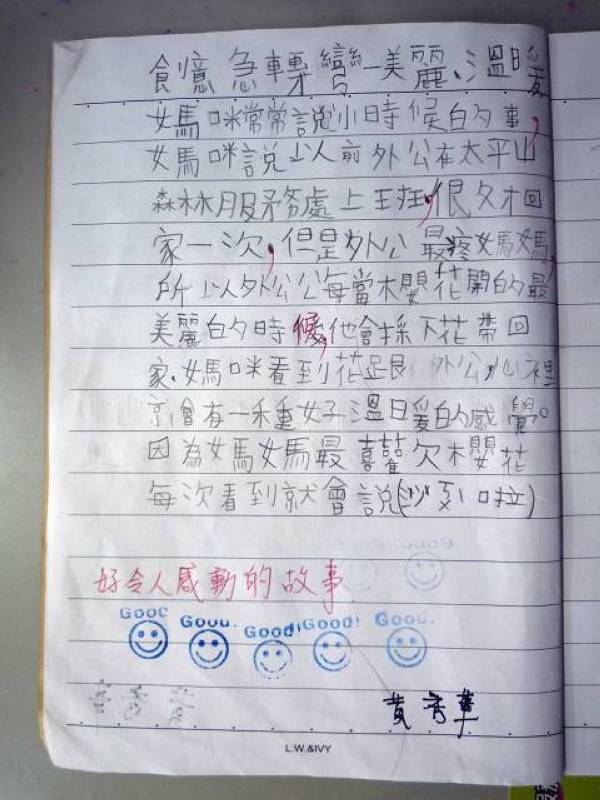 創意急轉彎—美麗、溫暖
媽咪常常說小時候的事,
媽咪說以前外公在太平山
森林服務處上班,很久才回
家一次,但是外公最疼媽媽,
所以外公公每當櫻花開的最
美麗的時候,他會採下花帶回
家.媽咪看到花跟外公,心裡
就會有一種好溫暖的感覺。
因為媽媽最喜歡櫻花
每次看到就會說(沙列啦)
好令人感動的故事
Good Good. Good! Good! Good.
黃秀華
L.W.&IVY